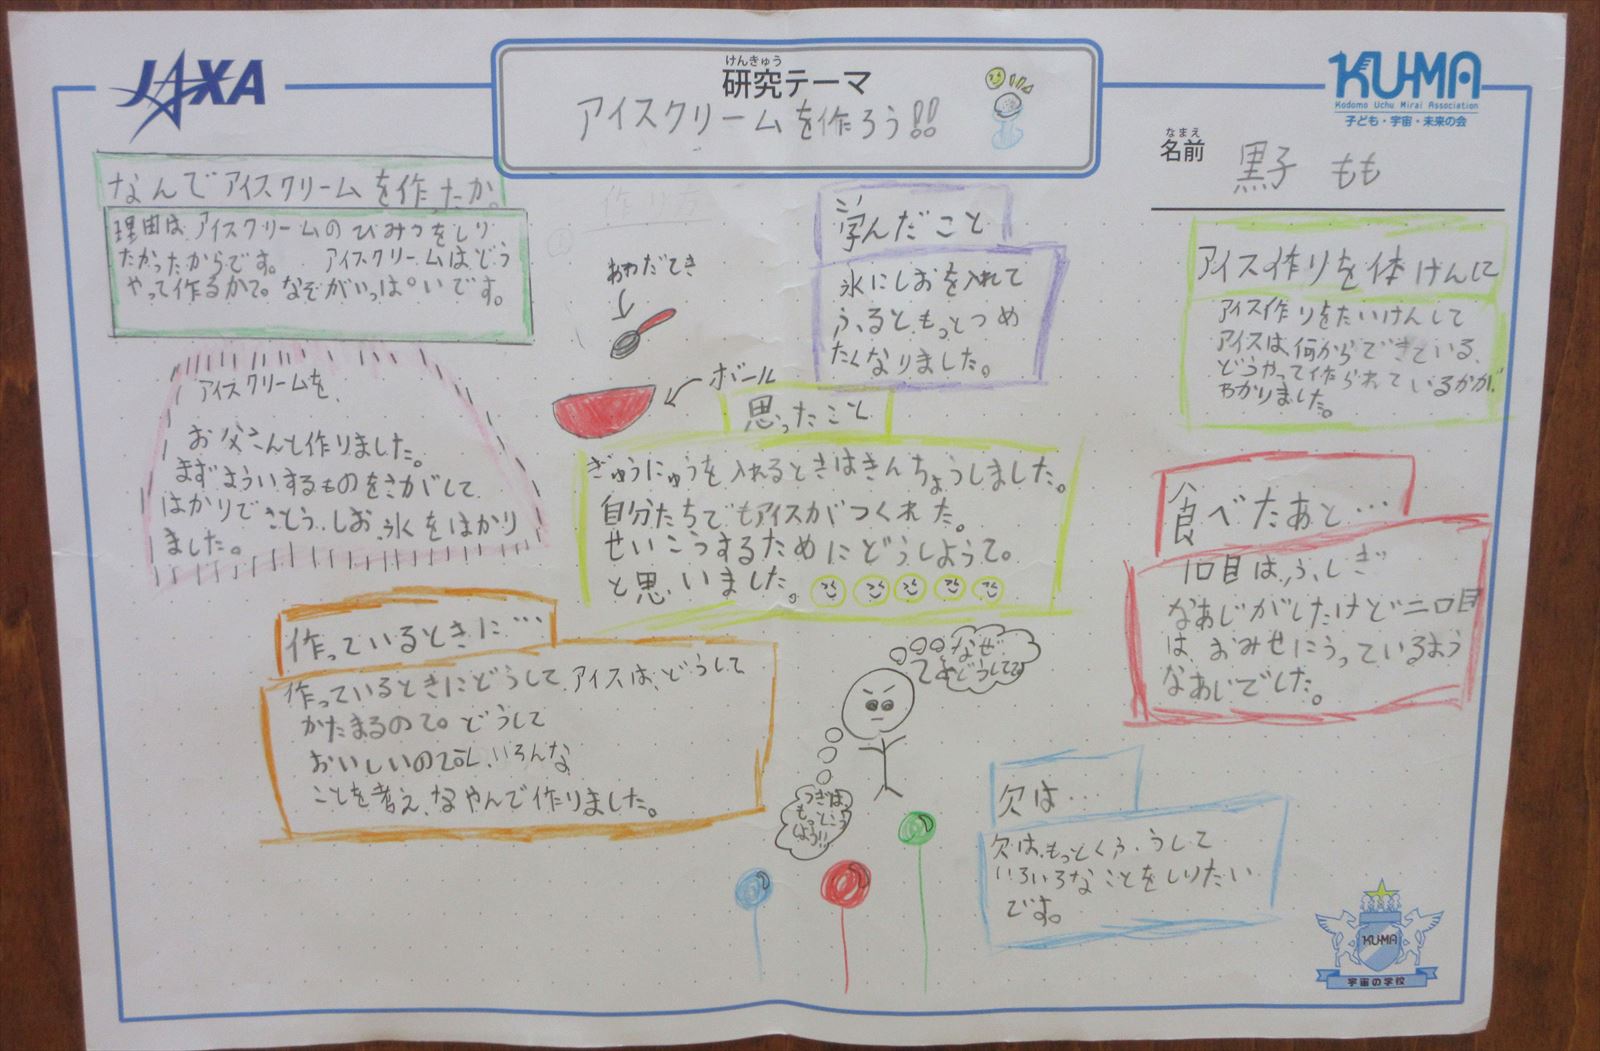 JAXA
けんきゅう
研究テーマ
アイスクリームを作ろう!!
KU-MA
Kodomo Uchu Mirai Association
子ども・宇宙・未来の会
なまえ
名前
黒子 もも
なんでアイスクリームを作ったか。
理由は、アイスクリームのひみつをしり
たかったからです。 アイスクリームはどう
やって作るかて。なぞがいっぱいです。
アイスクリームを、
お父さんと作りました。
まずよういするものをさがして
はかりでさとう、しお、氷をはかり
ました。
作り方
あわだてき
ボール
学んだこと
氷にしおを入れて
ふると、もっとつめ
たくなりました。
思ったこと
ぎゅうにゅうを入れるときはきんちょうしました。
自分たちでもアイスがつくれた。
せいこうするためにどうしようて。
と思いました。
アイス作りを体けんして
アイス作りをたいけんして
アイスは、何からできている、
どうやって作られているかが、
わかりました。
食べたあと…
1口目は、ふしぎ
なあじがしたけど二口目
は、おみせにうっているよう
なあじでした。
作っているときに…
作っているときにどうして、アイスは、どうして
かたまるので。どうして
おいしいので。と、いろんな
ことを考え、なやんで作りました。
なぜ
つぎは、
もっと
しよう!!
欠は…
欠は、もっとくふうして
いろいろなことをしりたい
です。
KU-MA
宇宙の学校